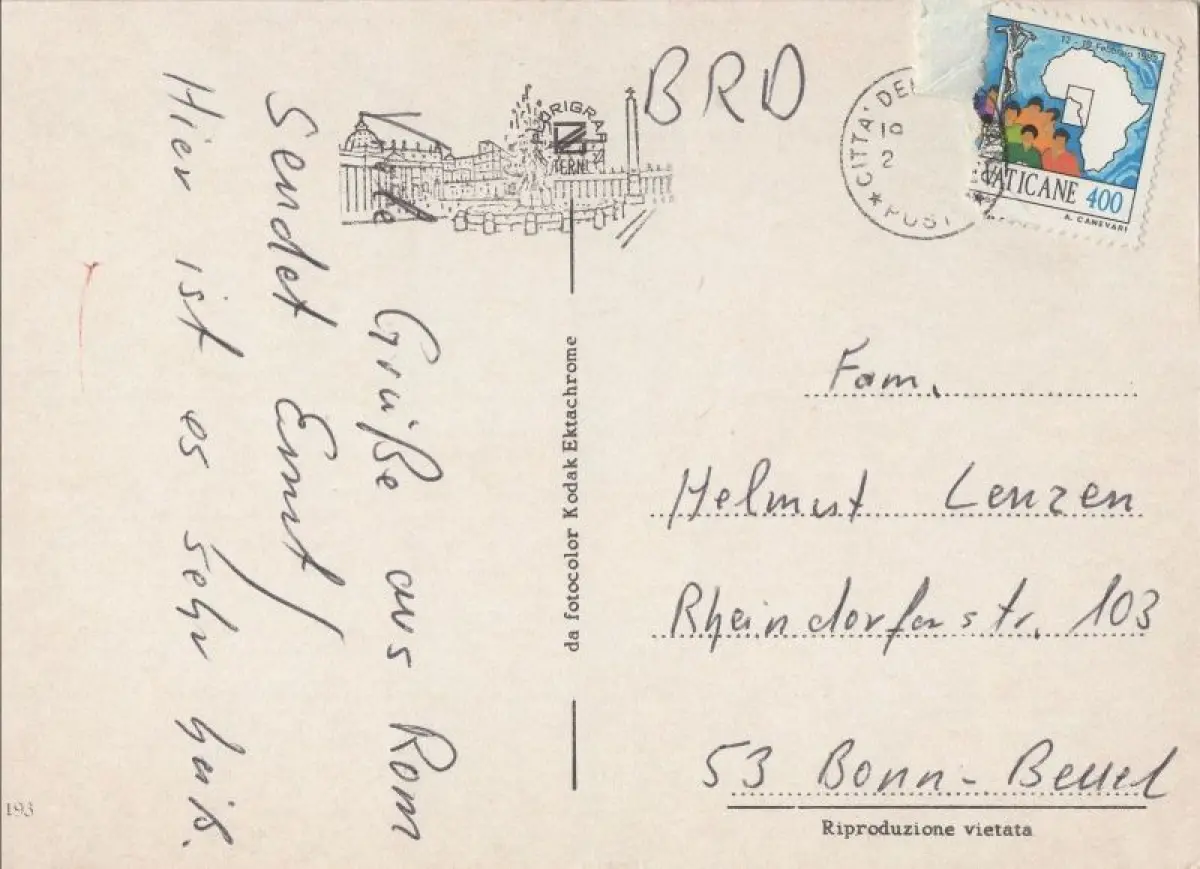 Viele Grüße aus Rom
sendet Ernst
Hier ist es sehr heiß.
PLURIGRAF
TERNI
da fotocolor Kodak Ektachrome
193
BRD
CITTA' DE
POST
19
2
12 - 19 Febbraio
VATICANE 400
A. CANEVARI
Fam.
Helmut Lenzen
Rheindorferstr. 103
53 Bonn-Beuel
Riproduzione vietata